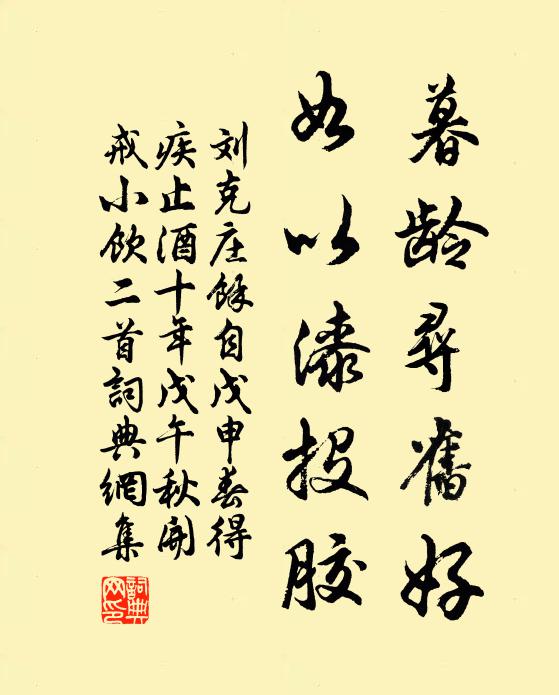 暮龄尋舊好
如以漆投胶
刘克庄餘自戊申春得
疾止酒十年戊午秋開
戒小飲二首詞典網集
詞典
网印